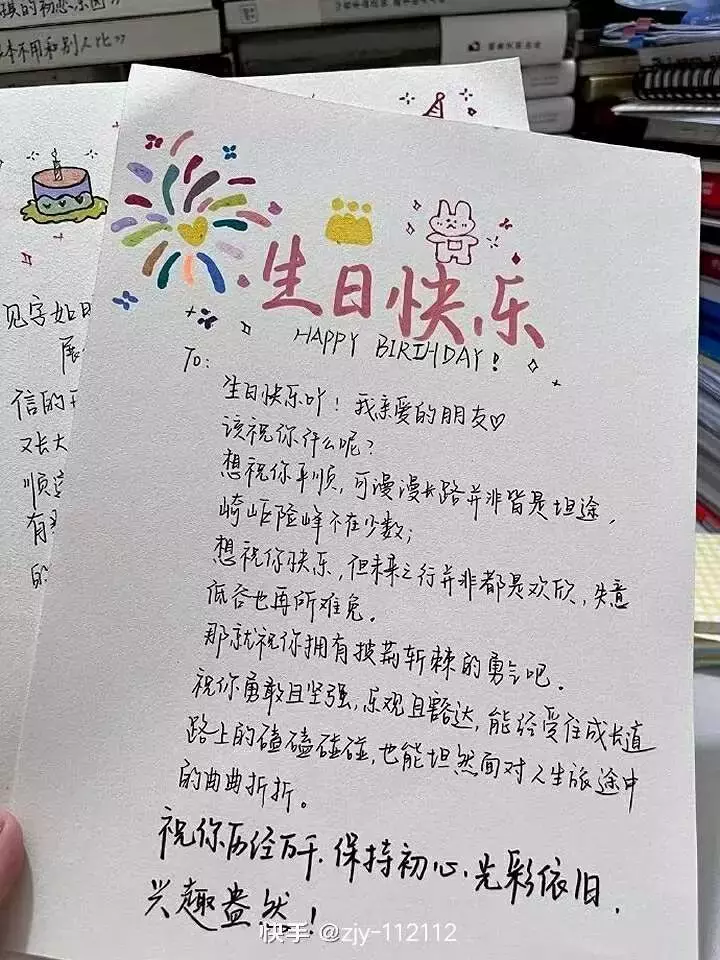 本不用和别人比
生日快乐
HAPPY BIRTHDAY!
TO:
生日快乐吖！我亲爱的朋友♡
该祝你什么呢？
想祝你平顺，可漫漫长路并非皆是坦途，
崎岖险峰不在少数；
想祝你快乐，但未来之行并非都是欢欣，失意
低谷也再所难免。
那就祝你拥有披荆斩棘的勇气吧。
祝你勇敢且坚强，乐观且豁达，能经受住成长道
路上的磕磕碰碰，也能坦然面对人生旅途中
的曲曲折折。
祝你历经万千，保持初心，光彩依旧，
兴趣盎然！
见字如
展
信的
又长大
顺
有
的
快手 @zjy-112112